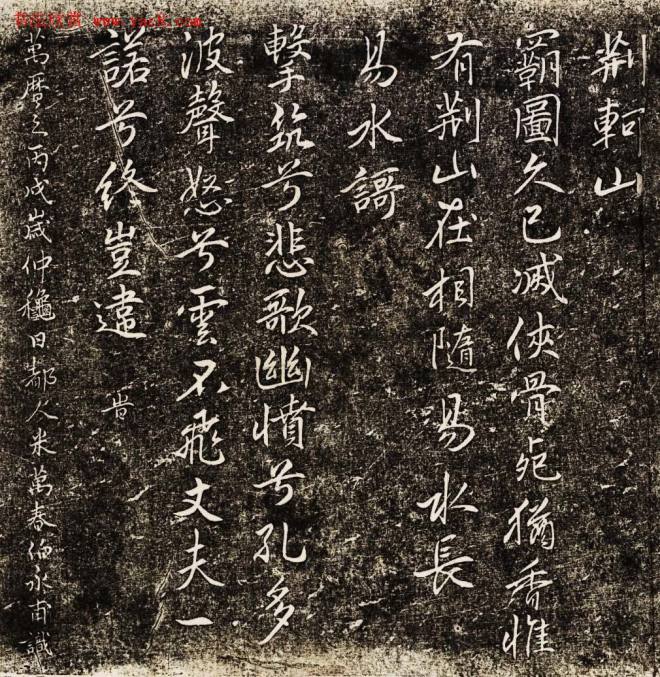 荆軻山
霸圖久已滅俠骨死猶香惟
有荆山在相隨易水長
易水謌
擊筑兮悲歌幽憤兮孔多
波聲怒兮雲不飛丈夫一
諾兮終豈違
萬曆之丙戌歲仲龝日都人米萬春伯永甫識